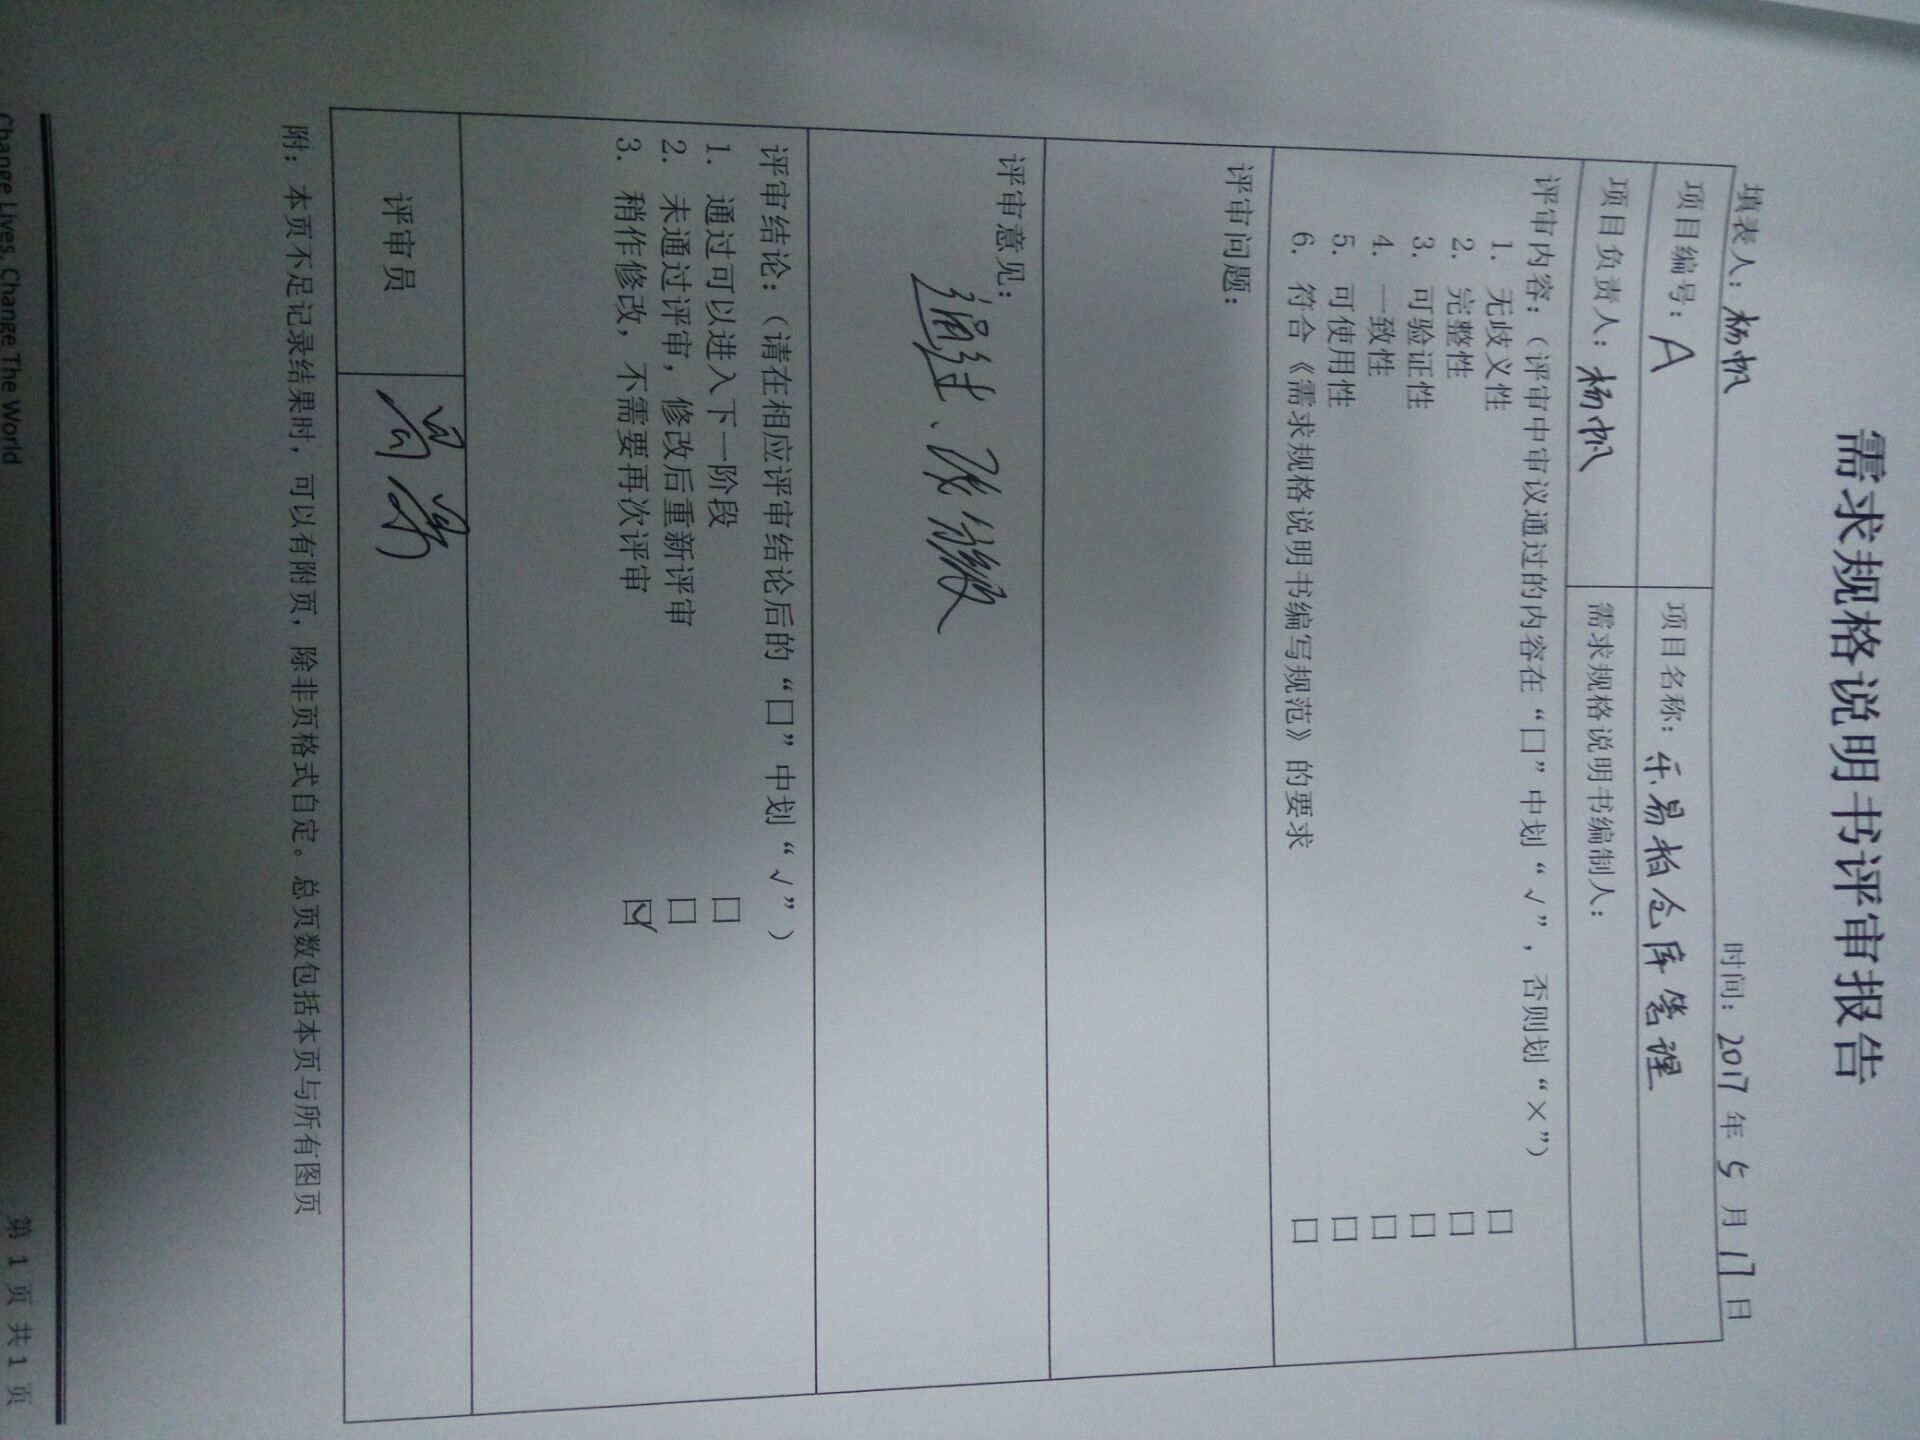 需求规格说明书评审报告
填表人：杨帆 时间：2017年5月17日
项目编号：A 项目名称：乐易拍仓库管理
项目负责人：杨帆 需求规格说明书编制人：
评审内容：（评审中审议通过的内容在“口”中划“√”，否则划“×”）
1. 无歧义性 □
2. 完整性 □
3. 可验证性 □
4. 一致性 □
5. 可使用性 □
6. 符合《需求规格说明书编写规范》的要求 □
评审问题：
评审意见：
评审结论：（请在相应评审结论后的“口”中划“√”）
1. 通过可以进入下一阶段 □
2. 未通过评审，修改后重新评审 □
3. 稍作修改，不需要再次评审 ☑
评审员
附：本页不足记录结果时，可以有附页，除非页格式自定。总页数包括本页与所有图页
Change Lives, Change The World 第 1 页 共 1 页